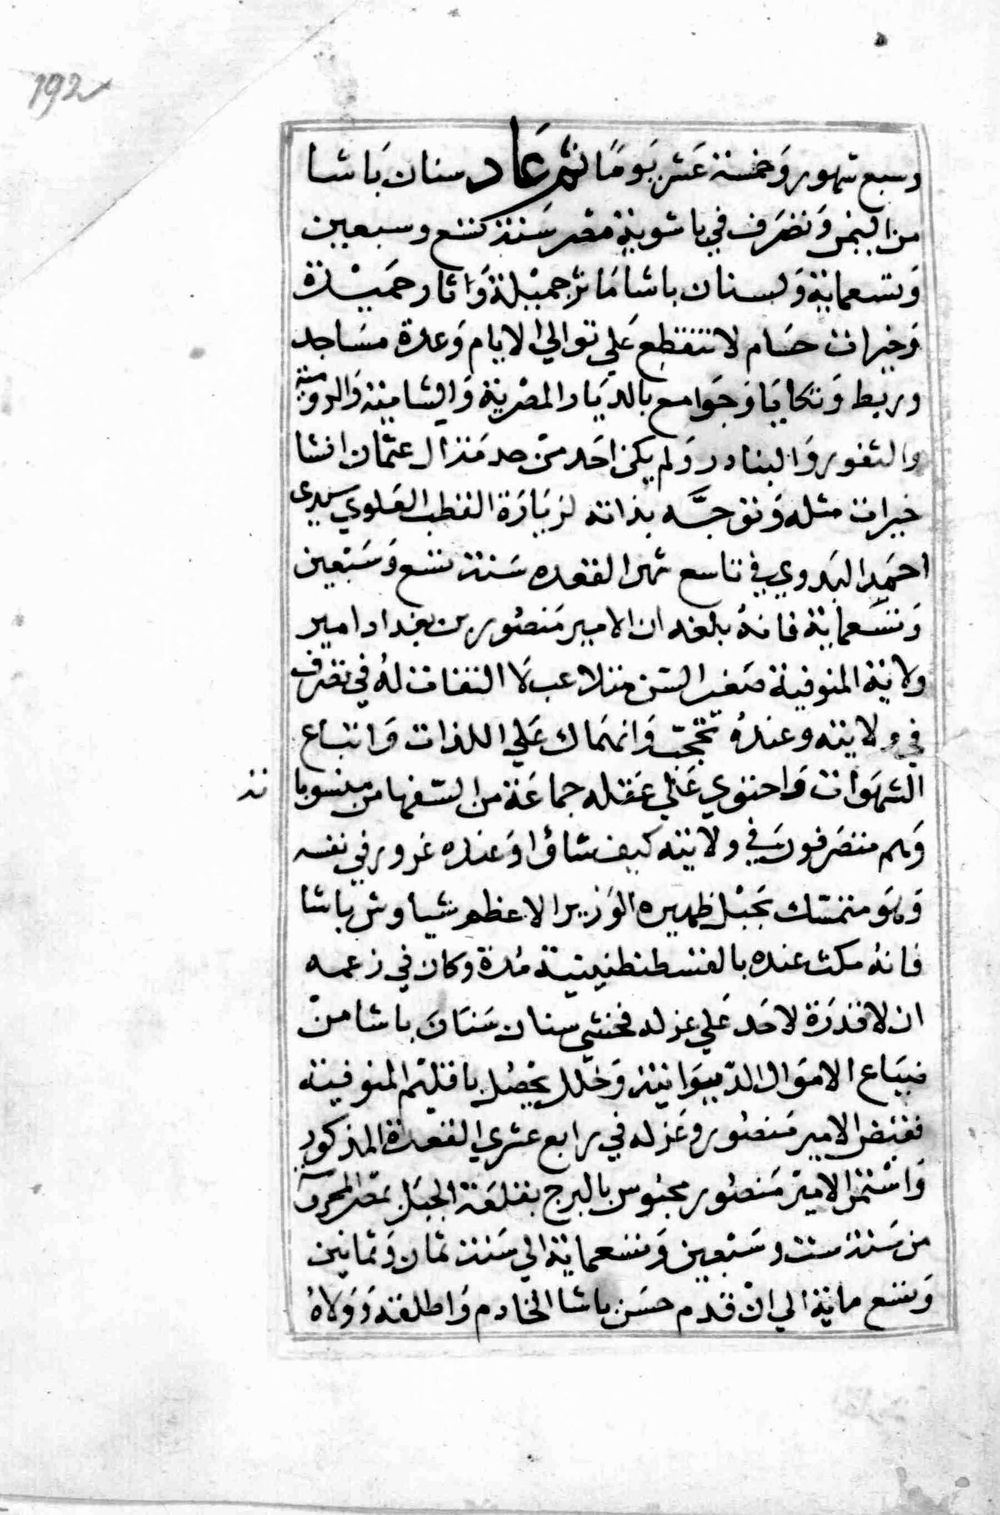 192
وسبع شهور وخمسة عشر يومًا ثم عَاد سنان بَاشا
من اليمن وَتصَرف في باشوية مصر سَنة تسع وسبعين
وَتسعماية وَلسنان باشا مَاثر جميْلة وَاثار حَميْدة
وَخيرات حسَام لا تنقطع عَلي توالي الايام وَعدة مسَاجد
وربط وَتكايَا وَجَوامع بالديَار المصْرية وَالشامية وَالرومية
والثغور وَالبنادر وَلم يكن احَد من حد مَنذ ال عثمان انشا
خيرات مثله وَتوجَّه بذاته لزيَارَة القطب العَلوي سيدى
احمَد البَدوي في تاسع شهر القعده سَنة تسع وَسَبْعين
وَتسَعماية فانهُ بلغه ان الامير مَنصُور بن بغداد امير
ولاية المنوفية صَغير السّن متلاعب لا التفات لهُ في تصرف
في ولايته وعندهُ تحجّب وَانهمَاك عَلي اللذات وَاتباع
الشهَوات وَاحتوي عَلي عَقله جماعَة من السّفها من منسوبا
ته
وَهم متصَرفون في ولايته كيف شاؤا وَعنده غرور في نفسه
وَهوَ متمسّك بحَبْل ظهيره الوَزير الاعظم سياوش باشا
فانهُ مكث عنده بالقسطنطينية مُدة وكان في زعمه
ان لا قدرَة لاحَد عَلي عزله فخشي سنان سَنَانَ باشا من
ضيَاع الامَوال الدّيوَانية وَخلل يحْصُل باقليْم المنوفية
فقبض الامير مَنصُور وعَزله في رابع عشري القعدة المذكور
وَاسْتمر الاميْر مَنصُور محبُوس بالبرج بقلعَة الجبَل بمصْر المحروسة
من سَنة ست وسَبْعين وَتسعماية الي سَنة ثمان وَثمانين
وَتسع ماية الي انْ قدم حسَن باشا الخادم وَاطلقه وَوَلاهُ